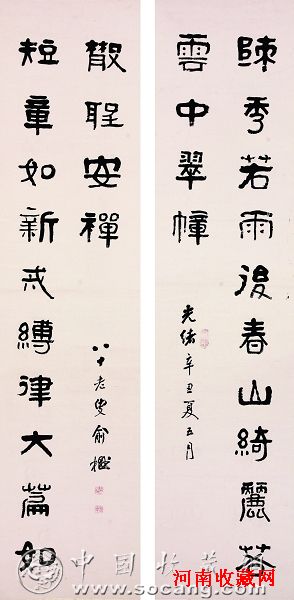 秀若雨後春山綺麗若
雲中翠幛
光緒辛丑夏五月
短章如新戒縛律大篇如
散聖安禪
八十老叟俞樾
中国收藏网
http://www.socang.com
河南收藏网